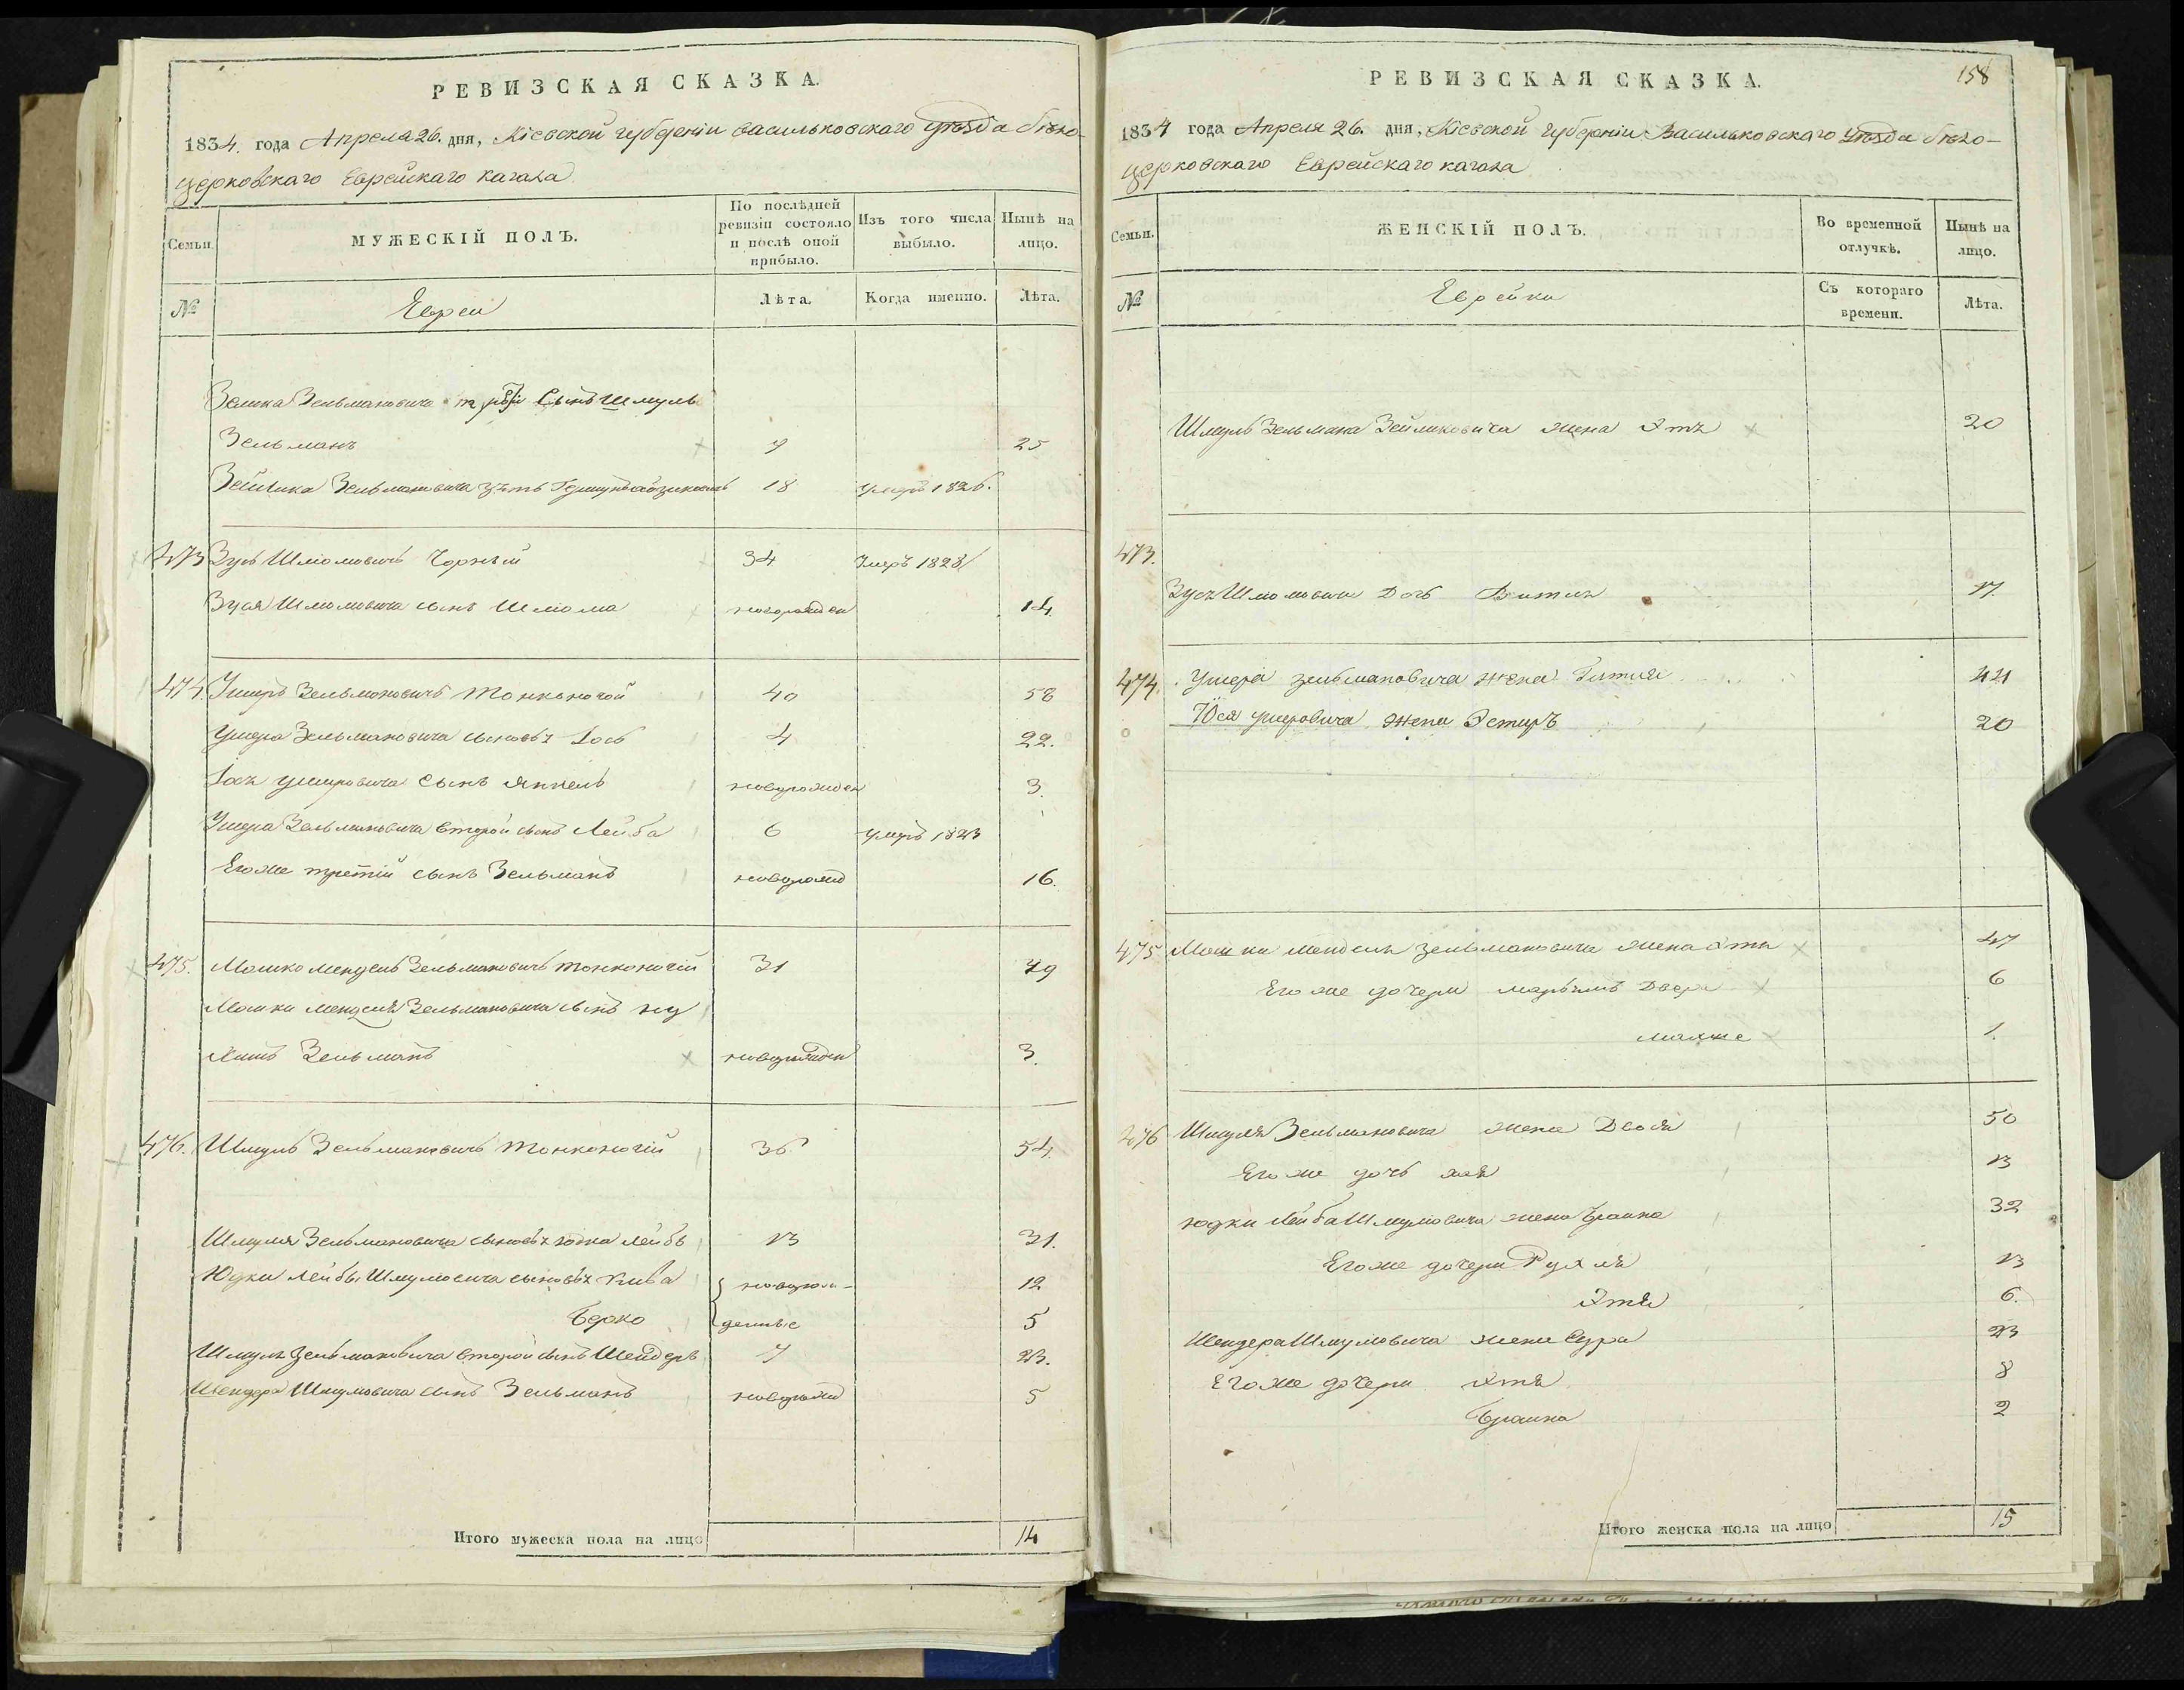 РЕВИЗСКАЯ СКАЗКА.
1834. года Апреля 26. дня, Кіевской губерніи васильковскаго уѣзда бѣло-
церковскаго Еврейскаго кагала
Семьи.
МУЖЕСКІЙ ПОЛЪ.
По послѣдней ревизіи состояло и послѣ оной прибыло.
Изъ того числа выбыло.
Нынѣ на лицо.
№
Евреи
Лѣта.
Когда именно.
Лѣта.
Зельмановича сынъ Шмуль
Зельманъ 7 25
Зейлика Зельмановича зять 18 умеръ 1826.
473 Зусь Шліомовичъ Чорный 34 Умеръ 1828
Зуся Шліомовича сынъ Шліома новорожден 14.
474. Ушеръ Зельмановичъ Тонконогой 40 58
Ушера Зельмановича сыновья Іось 4 22.
Іося Ушеровича сынъ Янкель новорожден 3.
Ушера Зельмановича второй сынъ Лейба 6 умеръ 1823
Его же третій сынъ Зельманъ новорожд 16.
475. Мошко Мендель Зельмановичъ Тонконогій 31 49
Мошки Менделя Зельмановича сынъ
Зельманъ новорожден 3.
476. Шмуль Зельмановичъ Тонконогій 36 54.
Шмуля Зельмановича сыновья Юдка Лейбъ 13 31.
Юдки Лейбы Шмулевича сыновья Кива новорож- 12
Берко денные 5
Шмуля Зельмановича второй сынъ Шендеръ 7 23.
Шендера Шмулевича сынъ Зельманъ новорожд 5
Итого мужеска пола на лицо 14
РЕВИЗСКАЯ СКАЗКА.
158
1834 года Апреля 26. дня, Кіевской губерніи Васильковскаго уѣзда бѣло-
церковскаго Еврейскаго кагала
Семьи.
ЖЕНСКІЙ ПОЛЪ.
Во временной отлучкѣ.
Нынѣ на лицо.
№
Еврейки
Съ котораго времени.
Лѣта.
Шмуль Зельмана Зейликовича жена Этя 20
473.
Зуся Шліомовича Дочь 17.
474. Ушера Зельмановича жена Гитля 44
Іося Ушеровича жена Эстеръ 20
475 Мошки Менделя Зельмановича жена Этя 47
Его же дочери Марьямъ Двера 6
1.
476 Шмуля Зельмановича жена Двося 50
Его же дочь Хая 13
Юдки Лейба Шмулевича жена Браина 32
Его же дочери Рухля 13
Этя 6.
Шендера Шмулевича жена Сура 23
Его же дочери Этя 8
Браина 2
Итого женска пола на лицо 15